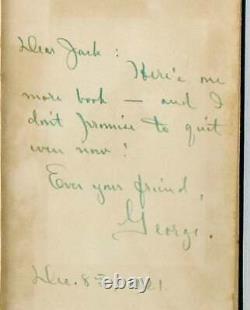 Dear Jack:
Here's one
more book — and I
don't promise to quit
even now!
Ever your friend,
George.
Dec. 8th